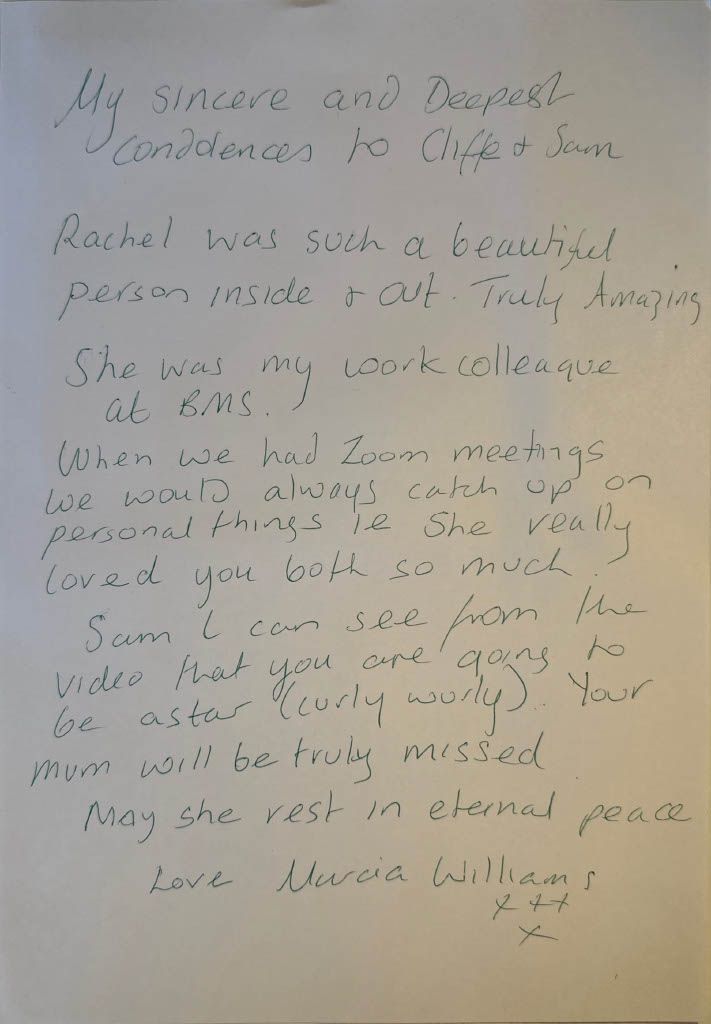 My sincere and Deepest
Conddences to Cliffe & Sam
Rachel was such a beautiful
person inside & out. Truly Amazing
She was my work colleague
at BMS.
When we had Zoom meetings
we would always catch up on
personal things ie She really
loved you both so much.
Sam I can see from the
video that you are going to
be a star (curly wurly). Your
mum will be truly missed
May she rest in eternal peace
Love Marcia Williams
x xx
x